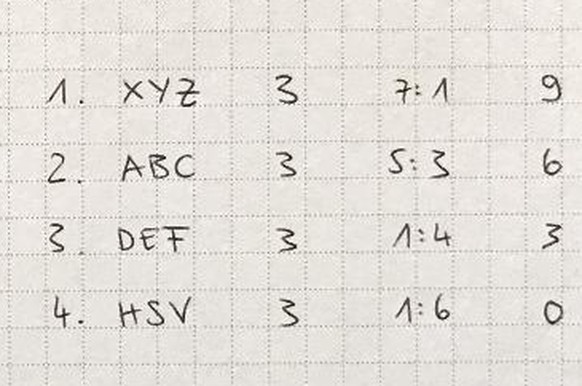 1. XYZ 3 7:1 9
2. ABC 3 5:3 6
3. DEF 3 1:4 3
4. HSV 3 1:6 0